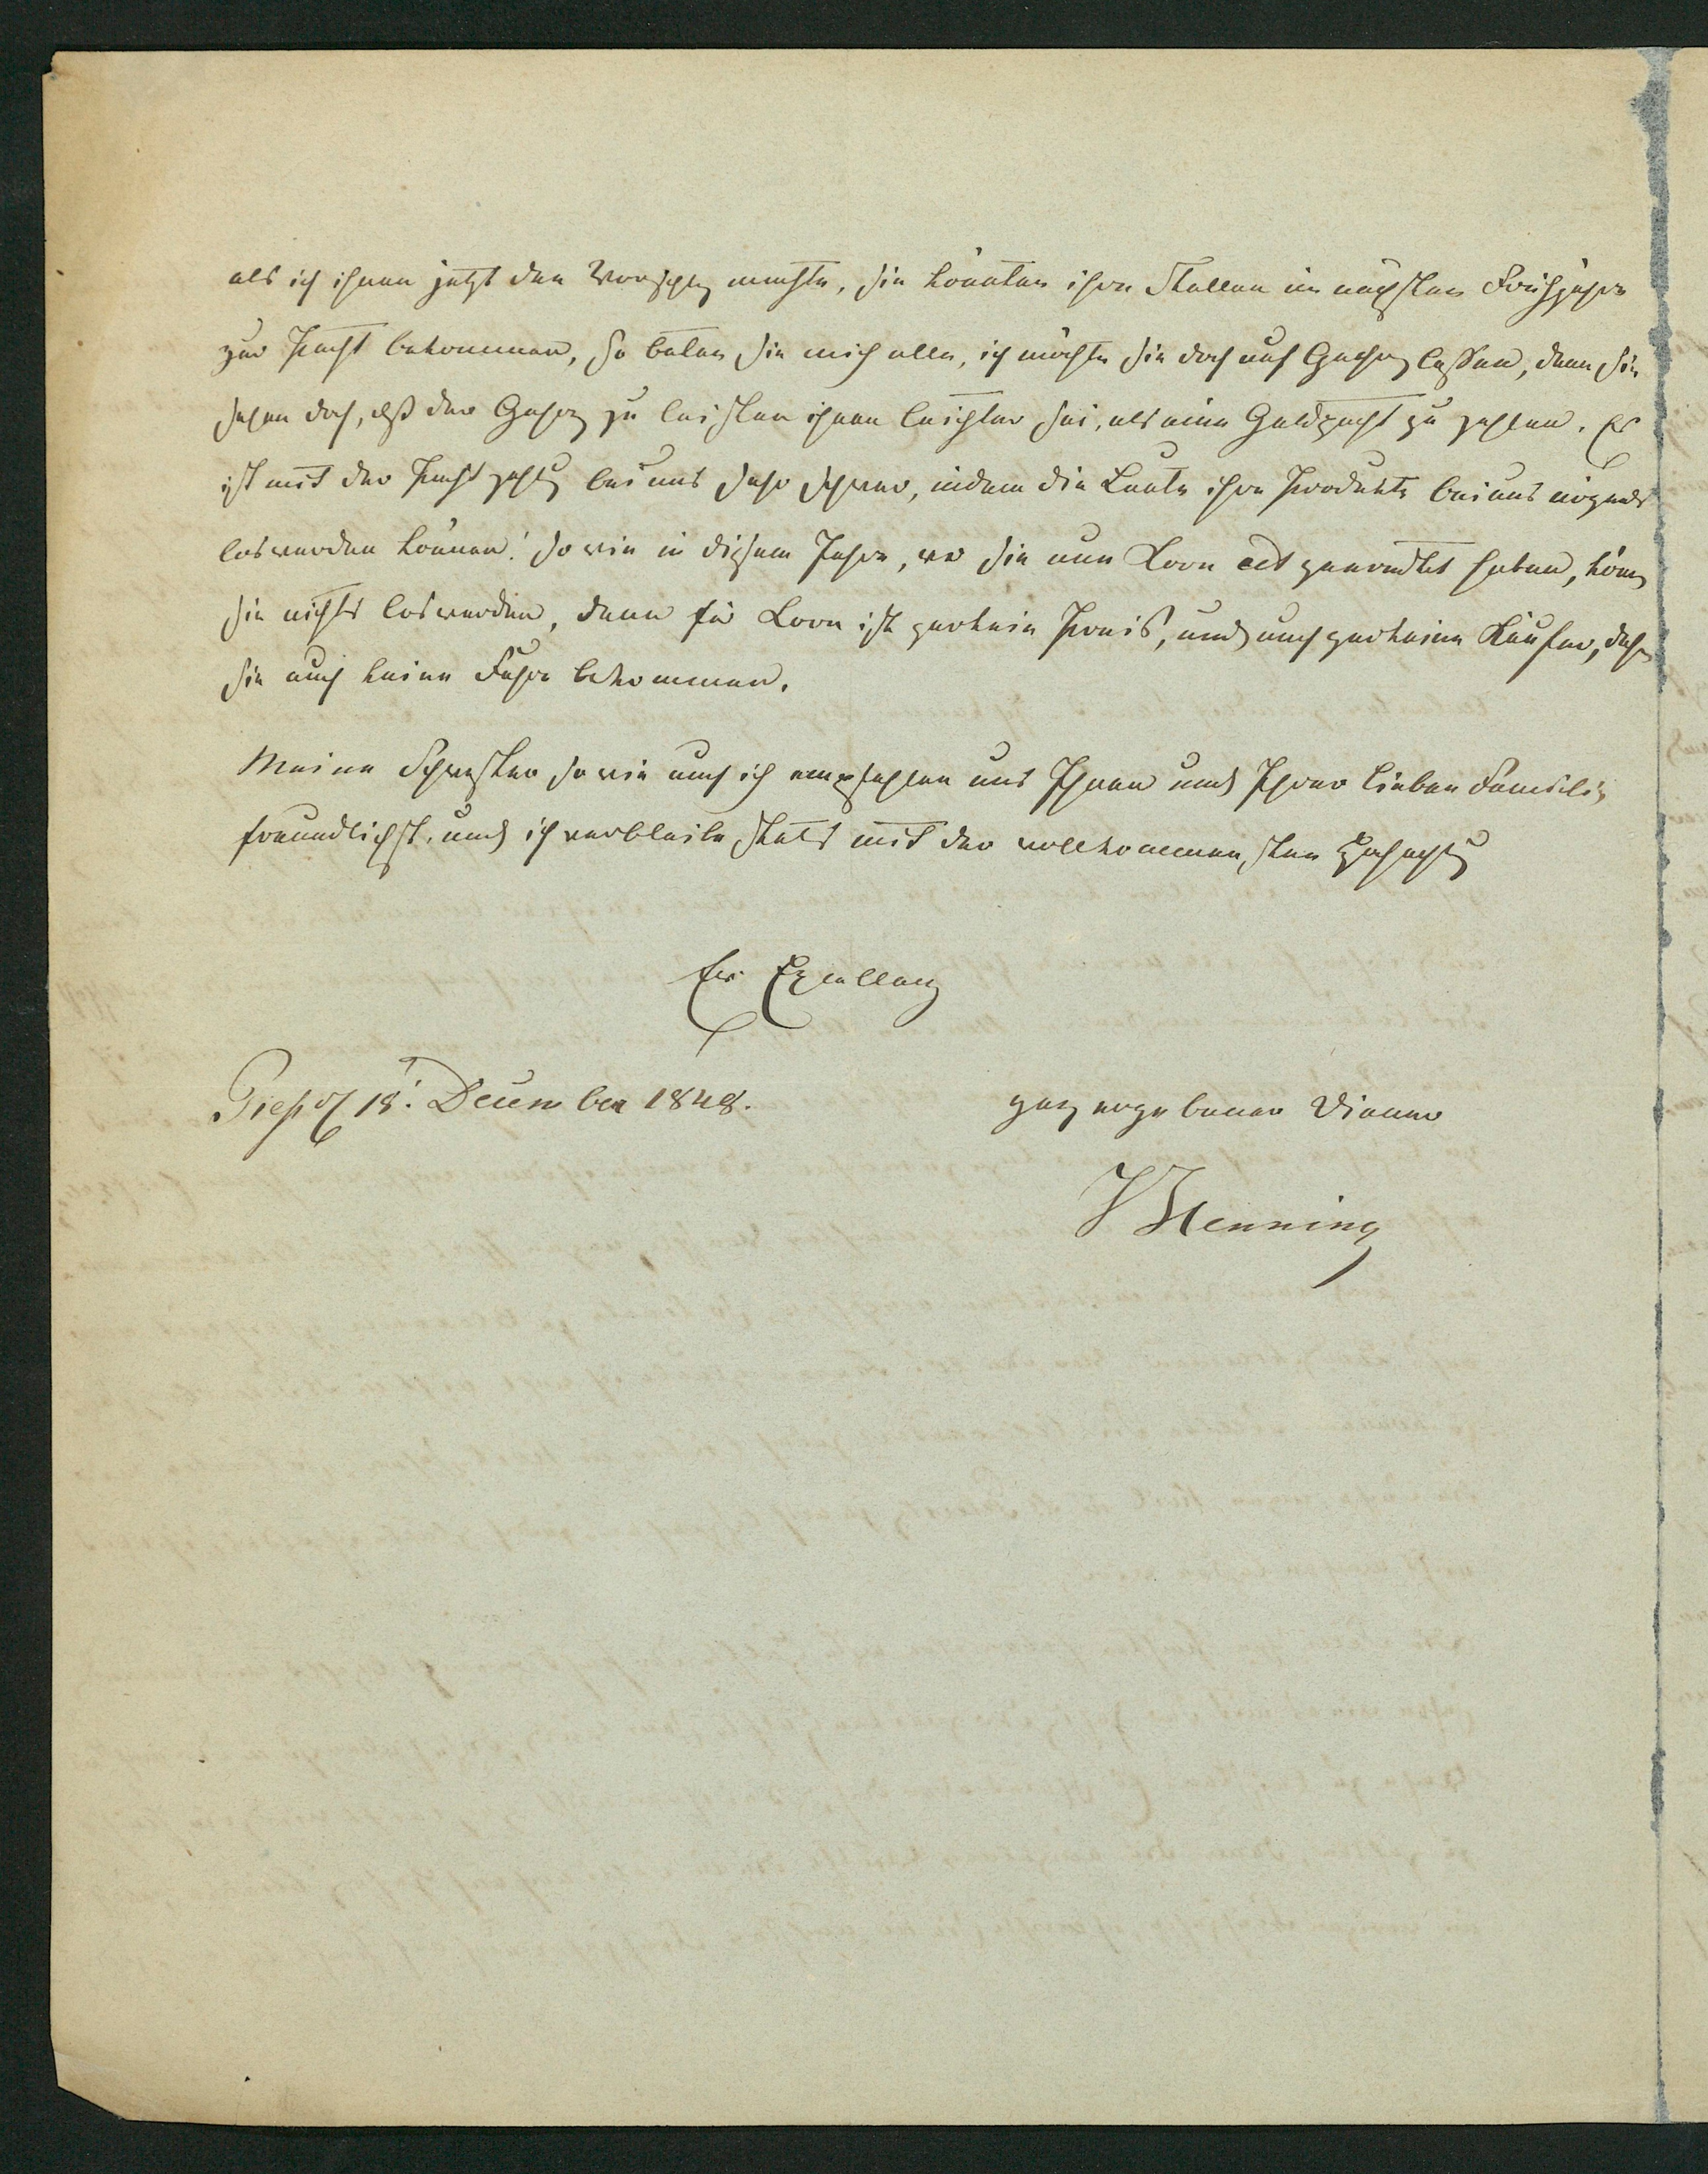 als ich ihnen jetzt den Vorschlag machte, sie könnten ihre Stellen im nächsten Frühjahre
zur Pacht bekommen, so baten sie mich alle, ich möchte sie doch auf Gehorch lassen, denn sie
sehen doch, daß der Gehorch zu leisten ihnen leichter sei, als eine Geldpacht zu zahlen. Es
ist mit der Pachtzahlung bei uns sehr schwer, indem die Leute ihre Produkte bei uns nirgends
loswerden können! So wie in diesem Jahre, wo sie nun Korn geerndtet haben, können
sie nichts loswerden, denn für Korn ist gar kein Preis, und auch gar keine Käufer, daher
sie auch keine Fuhre bekommen.
Meine Schwester so wie auch ich empfehlen uns Ihnen und Ihrer lieben Familie
freundlichst, und ich verbleibe stets mit der vollkommensten Hochachtung
Ew. Excellenz
18. December 1848.
ganz ergebener Diener
Henning